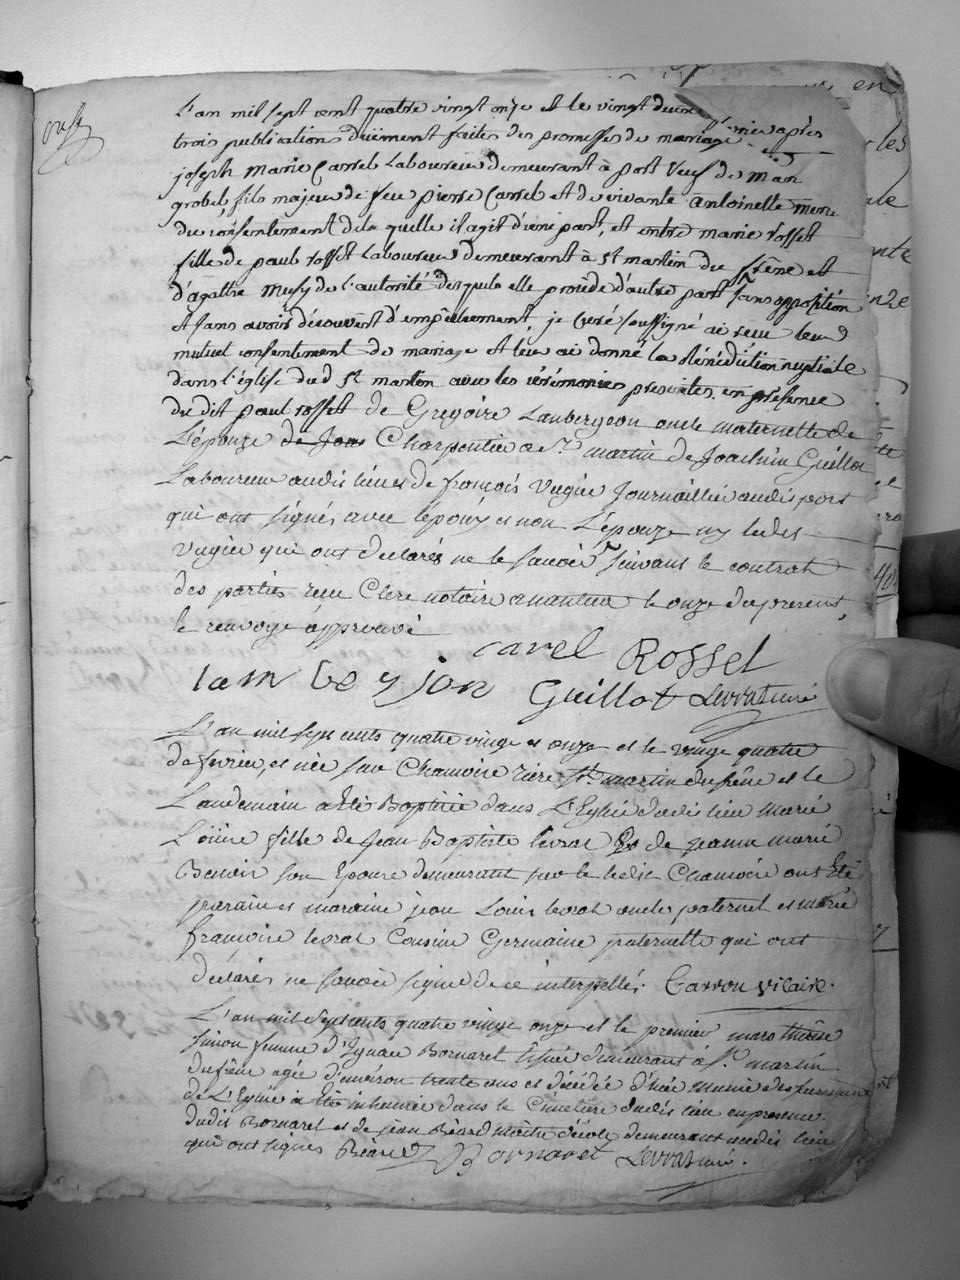 L'an mil sept cent quatre vingt onze et le vingt deux après
trois publications duëment faites des promesses de mariage
joseph marie Carrel Laboureur demeurant à port Vusy de
grobel, fils majeur de feu pierre Carrel et de vivante antoinelle
du consentement de la quelle il agit d'une part, et entre marie rosset
fille de paul rosset Laboureur demeurant à st martin du frêne et
d'agathe Musy de l'autorité desquels elle procède d'autre part sans opposition
et sans avoir découvert d'empêchement, je curé soussigné ai reçu leur
mutuel consentement de mariage et leur ai donné la Bénédiction nuptiale
dans l'église dud st martin avec les cérémonies prescrites en présence
du dit paul rosset de Gregoire Laubergeon oncle maternelle de
L'épouze Charpentier a st martin de Joachin Guillot
Laboureur audit lieu et de françois Vugier Journaillier audit port
qui ont signés avec l'époux et non L'épouze ny ledit
Vugier qui ont declarés ne le savoir suivant le contrat
des parties reçu Clerc notaire a nantua le onze du present,
le renvoye approuvé
carel Rosset
Guillot Levrat curé
L'an mil sept cents quatre vingt et onze et le vingt quatre
de fevrier, est née sur Chamoire rière st martin du frêne et le
Landemain a été Baptisée dans L'Eglise dudit lieu Marie
Loüise fille de Jean Baptiste levrat de jeanne marie
Benoit son Epouse demeurant sur le dit Chamoire ont Eté
parain et maraine jean Louis levrat oncle paternel et marie
françoise levrat Cousine Germaine paternelle qui ont
declarés ne savoir signé de ce interpellés. Carron vicaire.
L'an mil sept cents quatre vingt onze et le premier mars therese
simon femme d'Ignace Bornarel demeurant à St martin
du frêne agée d'environ trente ans et décédée hier munie des sacrements
de L'Eglise a été inhumée dans le Cimetiere dudit lieu en presence
dudit Bornarel et de jean Béard Maitre d'école demeurant audit lieu
qui ont signés Béard Bornarel Levrat curé.